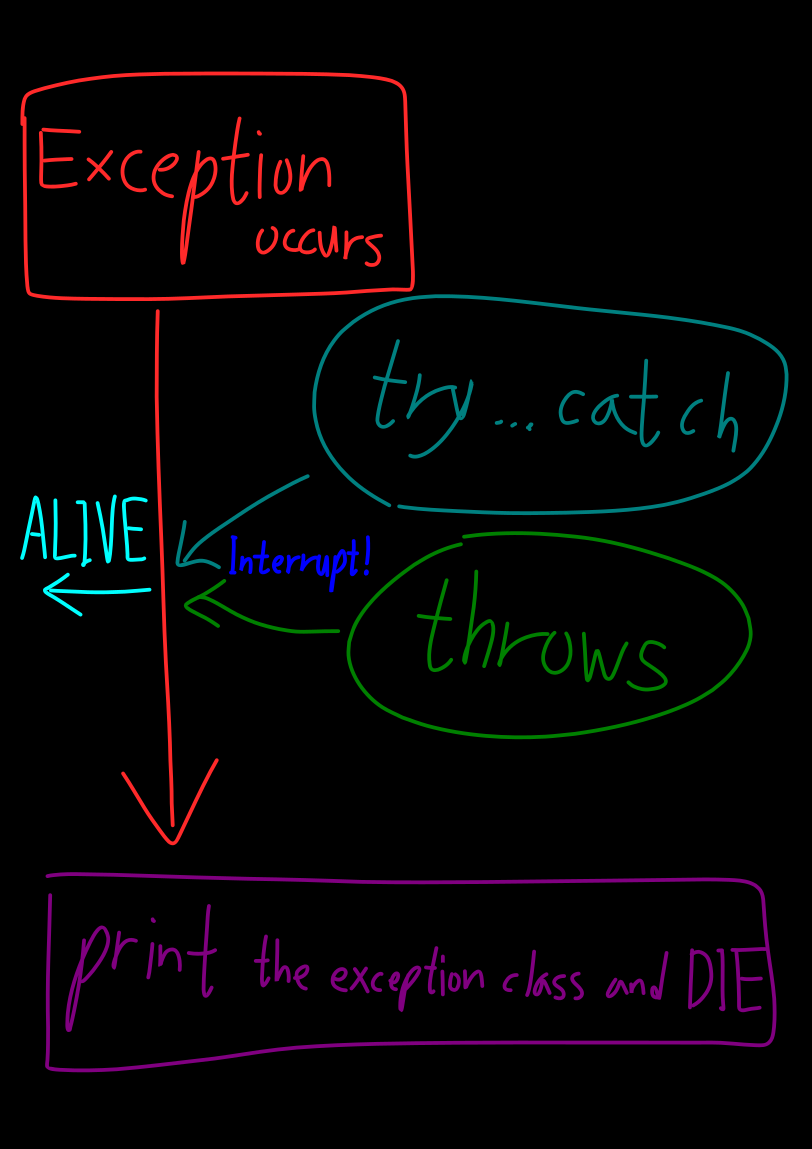 Exception
occurs
try...catch
ALIVE
Interrupt!
throws
print the exception class and DIE